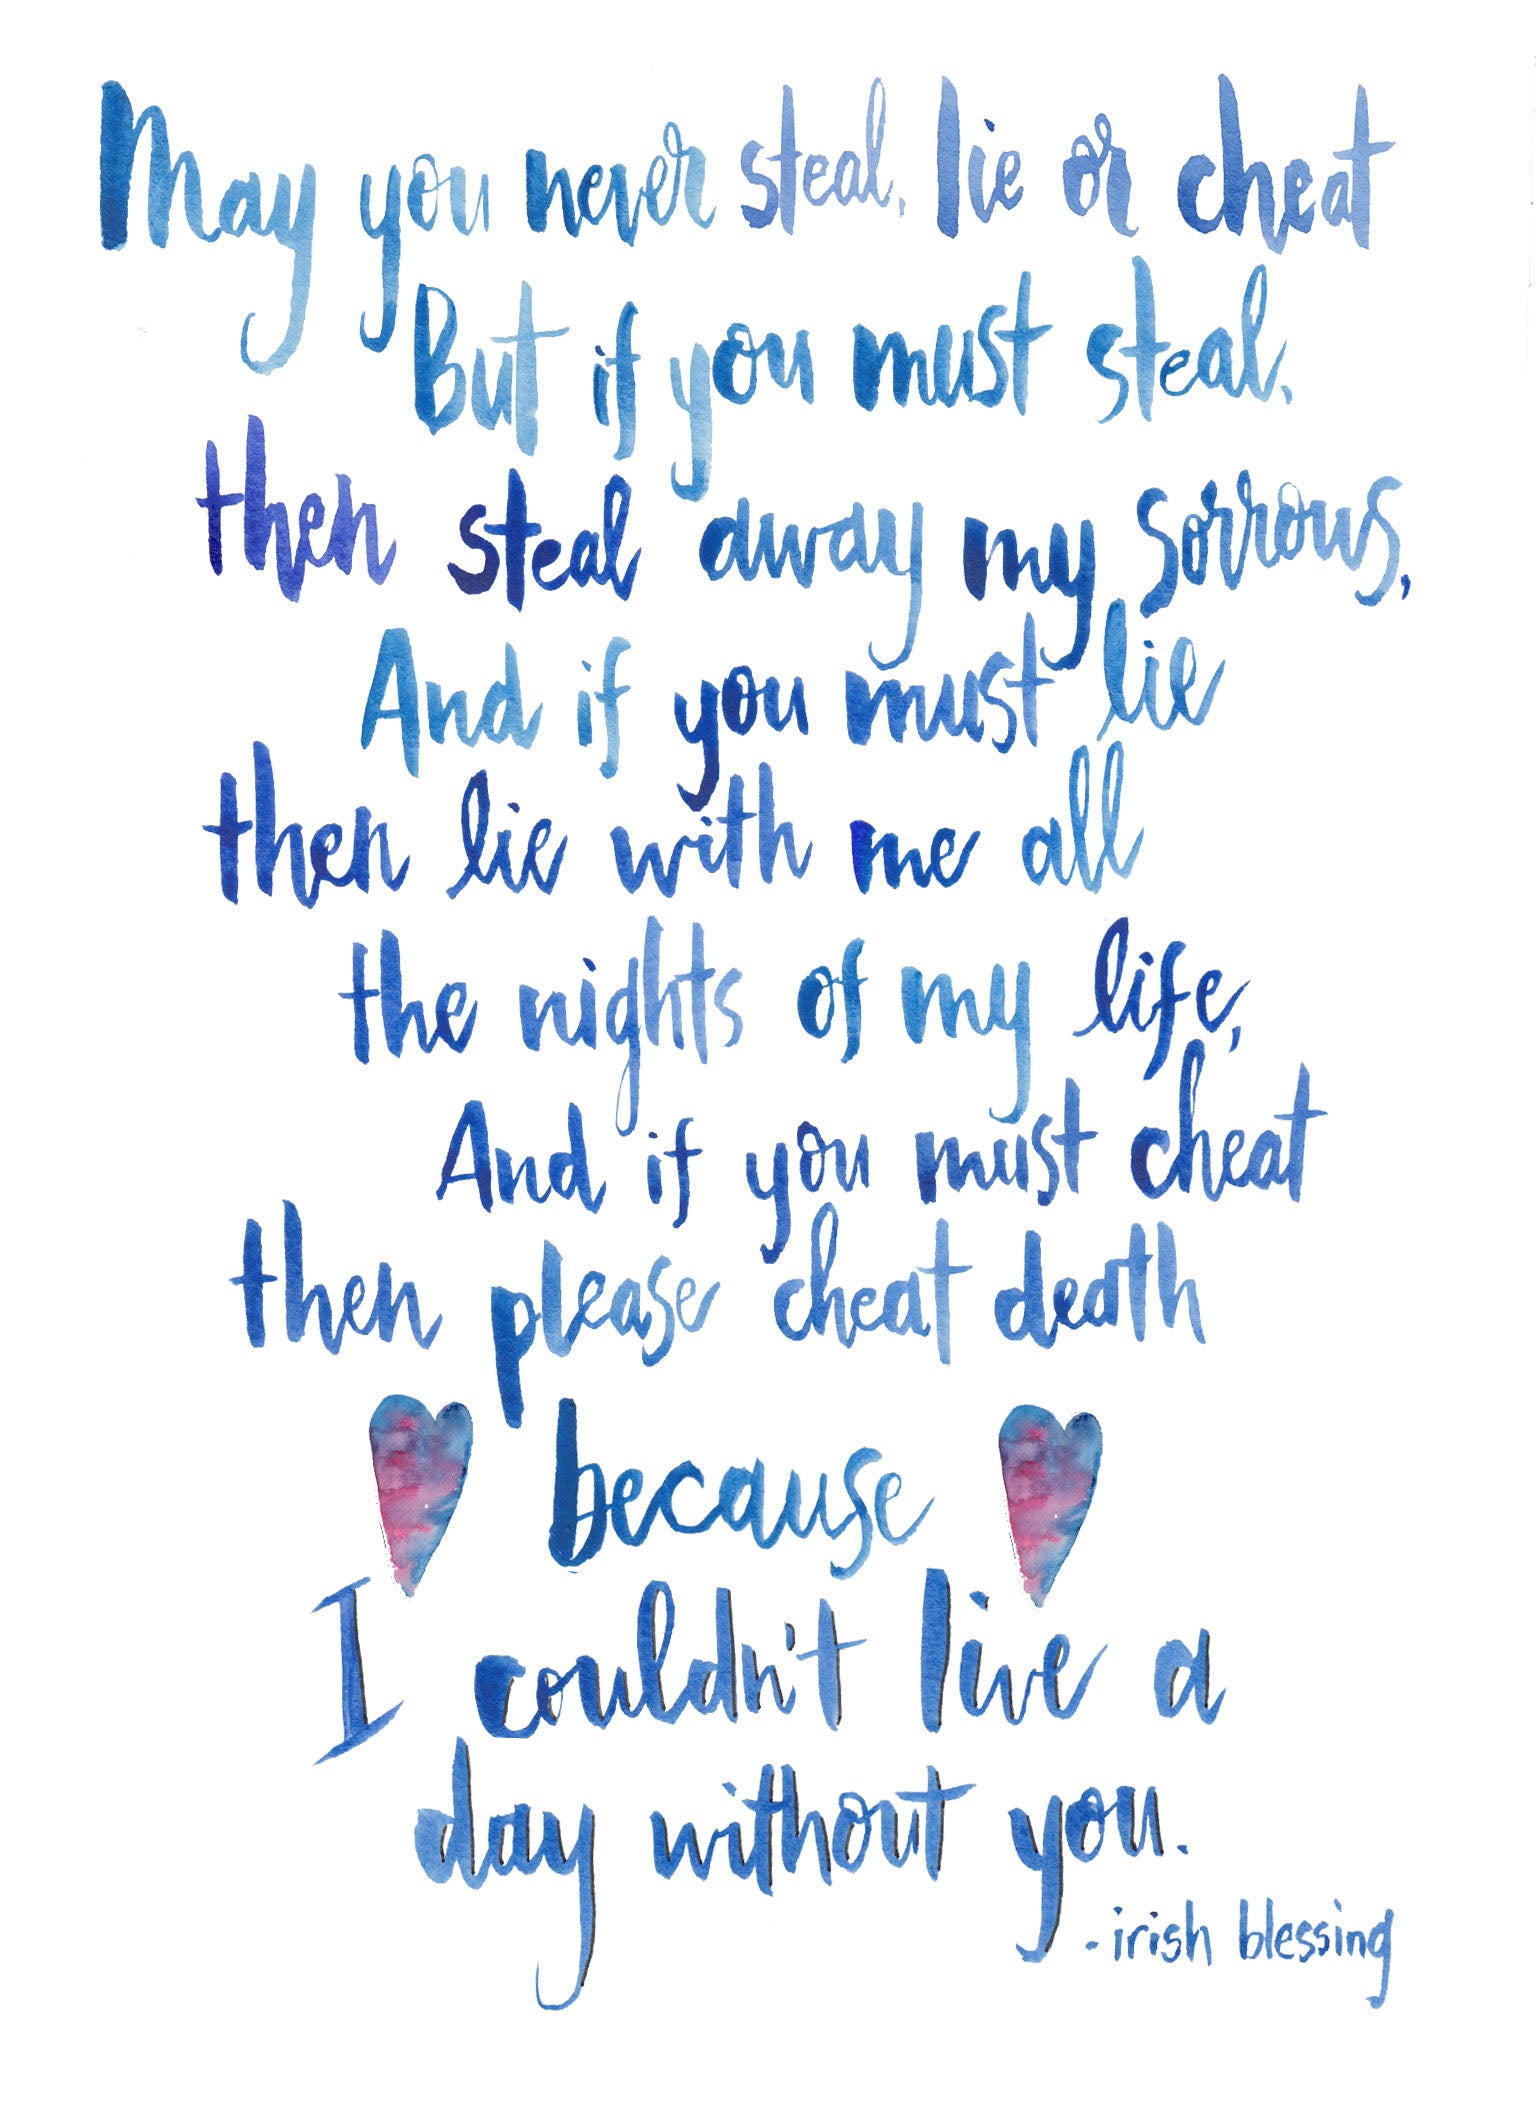 May you never steal, lie or cheat
But if you must steal,
then steal away my sorrows,
And if you must lie
then lie with me all
the nights of my life,
And if you must cheat
then please cheat death
because
I couldn't live a
day without you.
- irish blessing